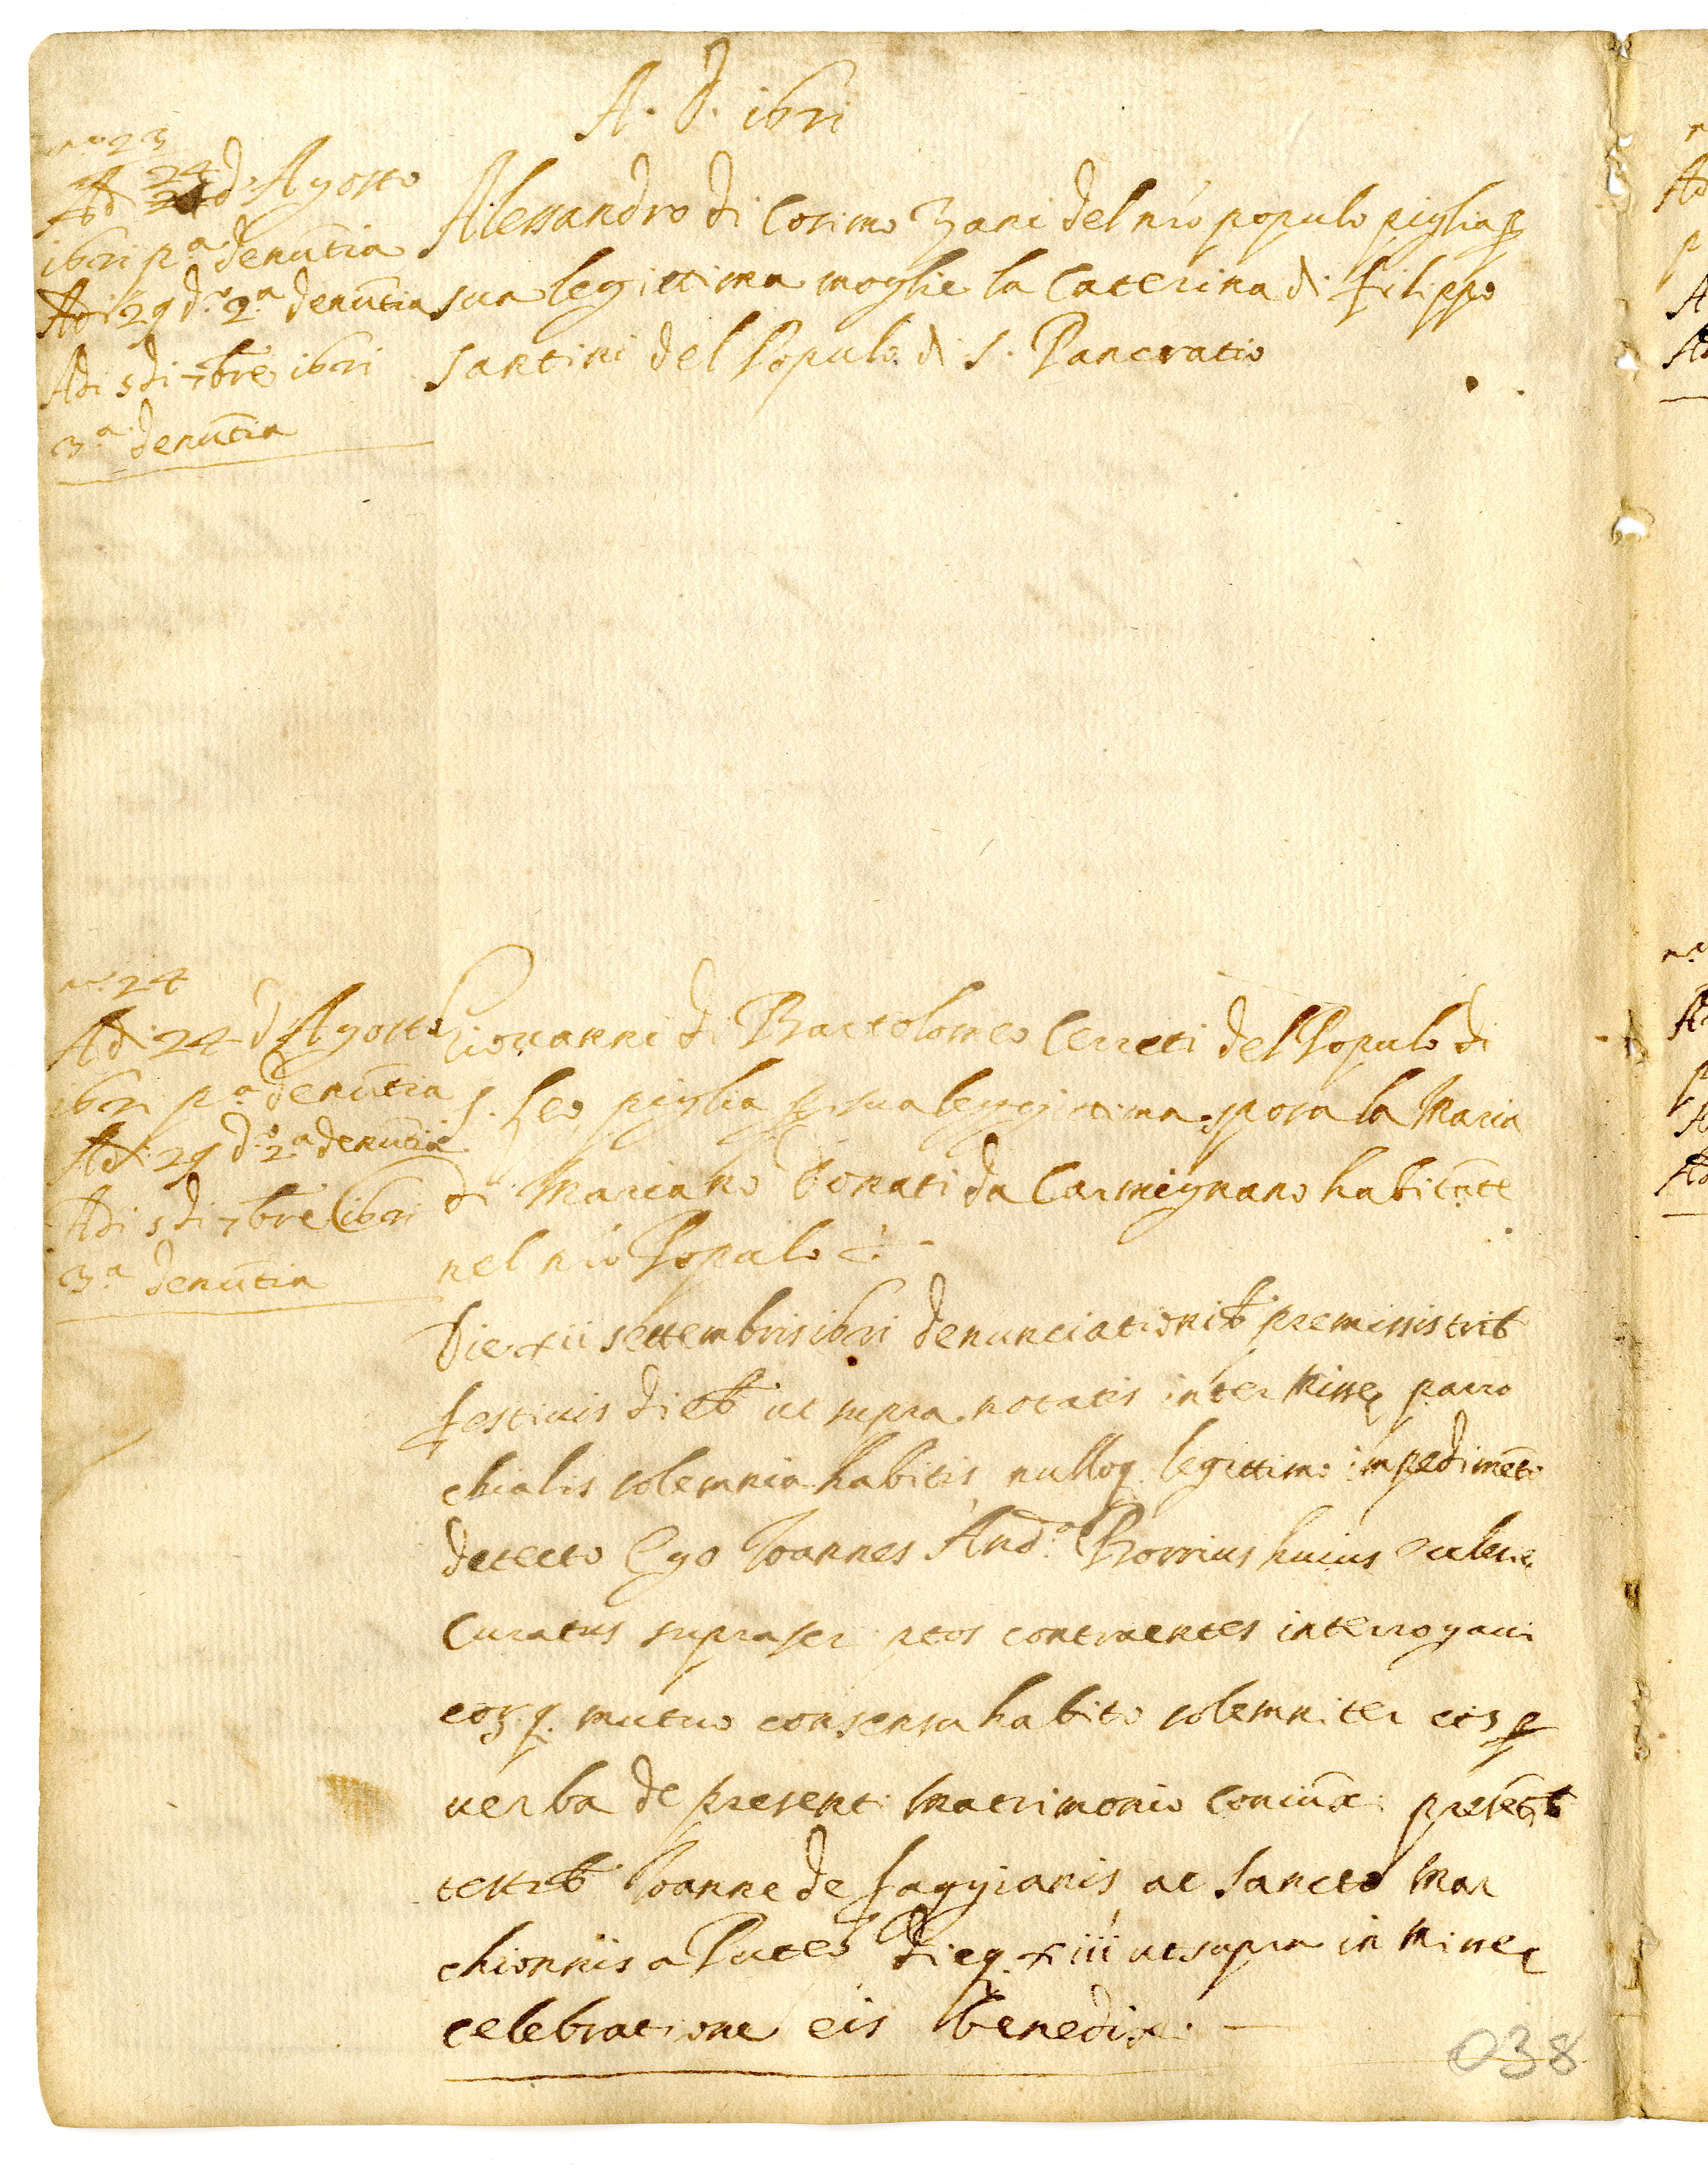 A. D. 1621
nº 23
Adi 24 d'Agosto
1621 pª denūtia
Adi 29 dº 2ª denūtia
Adi 5 di 7bre 1621
3ª denūtia
Alessandro di Cosimo Zani del nrō populo piglia p
sua legittima moglie la Caterina di Filippo
Santini del Populo di S. Pancratio
nº 24
Adi 24 d'Agosto
1621 pª denūtia
Adi 29 dº 2ª denūtia
Adi 5 di 7bre 1621
3ª denūtia
Giovanni di Bartolomeo Cerreti del Populo di
S. Leo piglia p sua leggittima sposa la Maria
di Mariano Donati da Carmignano habitāte
nel nrō Populo
Die xii settembris 1621 denunciationib premissis trib
festiuis dieb ut supra notatis inter Missę parro
chialis solemnia habitis nulloq legittimo impedimēto
detecto Ego Joannes Andª huius
Curatus suprascriptos contraentes interrogaui
eoȝq mutuo consensu habito solemniter eos p
uerba de presenti matrimonio coniūxi presētib
testib Joanne de Faggianis ac Sancto Mar
chionniis a Puteo Dieq xiii ut supra in Missę
celebratione eis benedixi
038